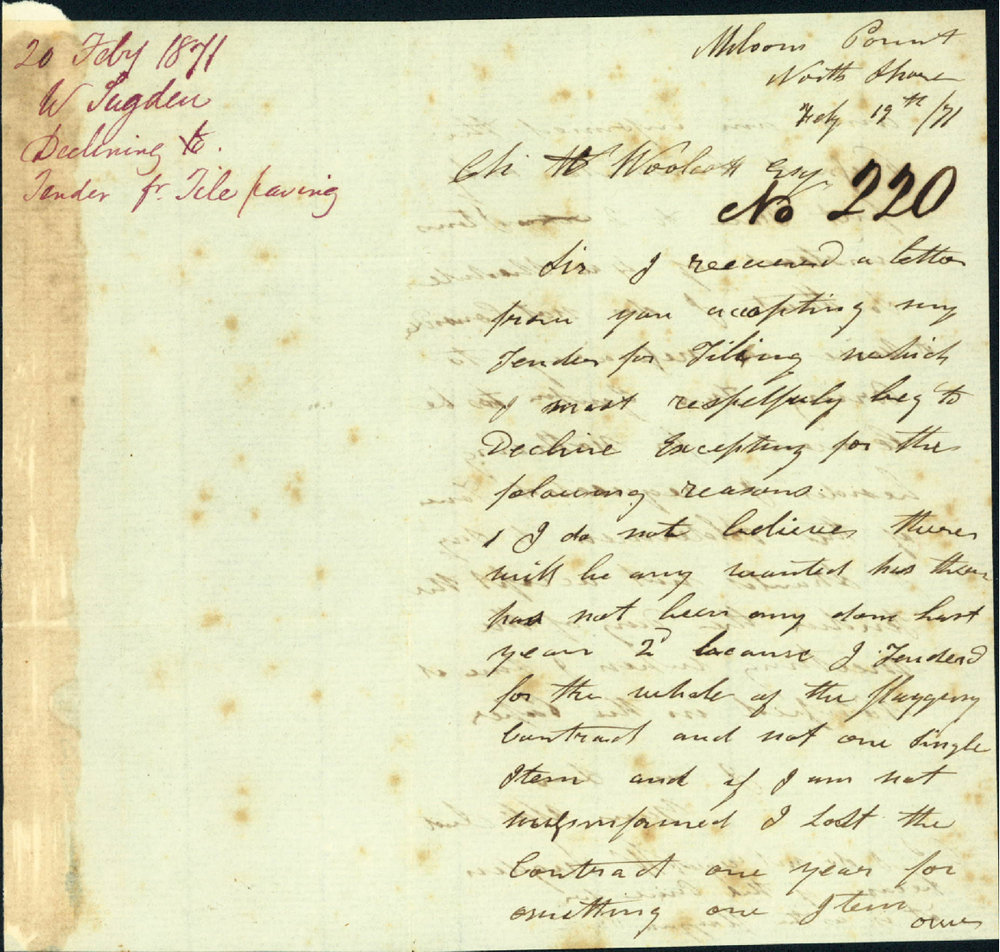 20 Feby 1871
W Sugden
Declining to
Tender fr. Tile paving
Milsons Point
North Shore
Feby 19th /71
Ch H Woolcott Esq
No 220
Sir I received a letter
from you accepting my
Tender for Tileing which
I must respelfuly beg to
Decline Excepting for the
folowing reasons
1 I do not believe theres
will be any wanted has there
has not been any done last
year 2d because I Tenderd
for the whole of the flagging
Contract and not one Single
Item and if I am not
misinformed I Lost the
Contract one year for
omitting one Item